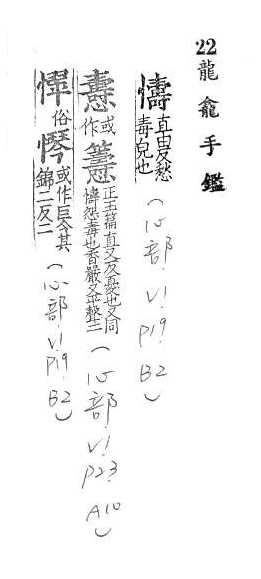 22 龍龕手鑑
懤直由反愁毒皃也(心部.V1.P19.B2)
或作正玉篇直又反憂也又同懤怨毒也香嚴又平聲二(心部.V1.P23.A10)
俗或作巨今其錦二反二(心部.V1.P19.B2)